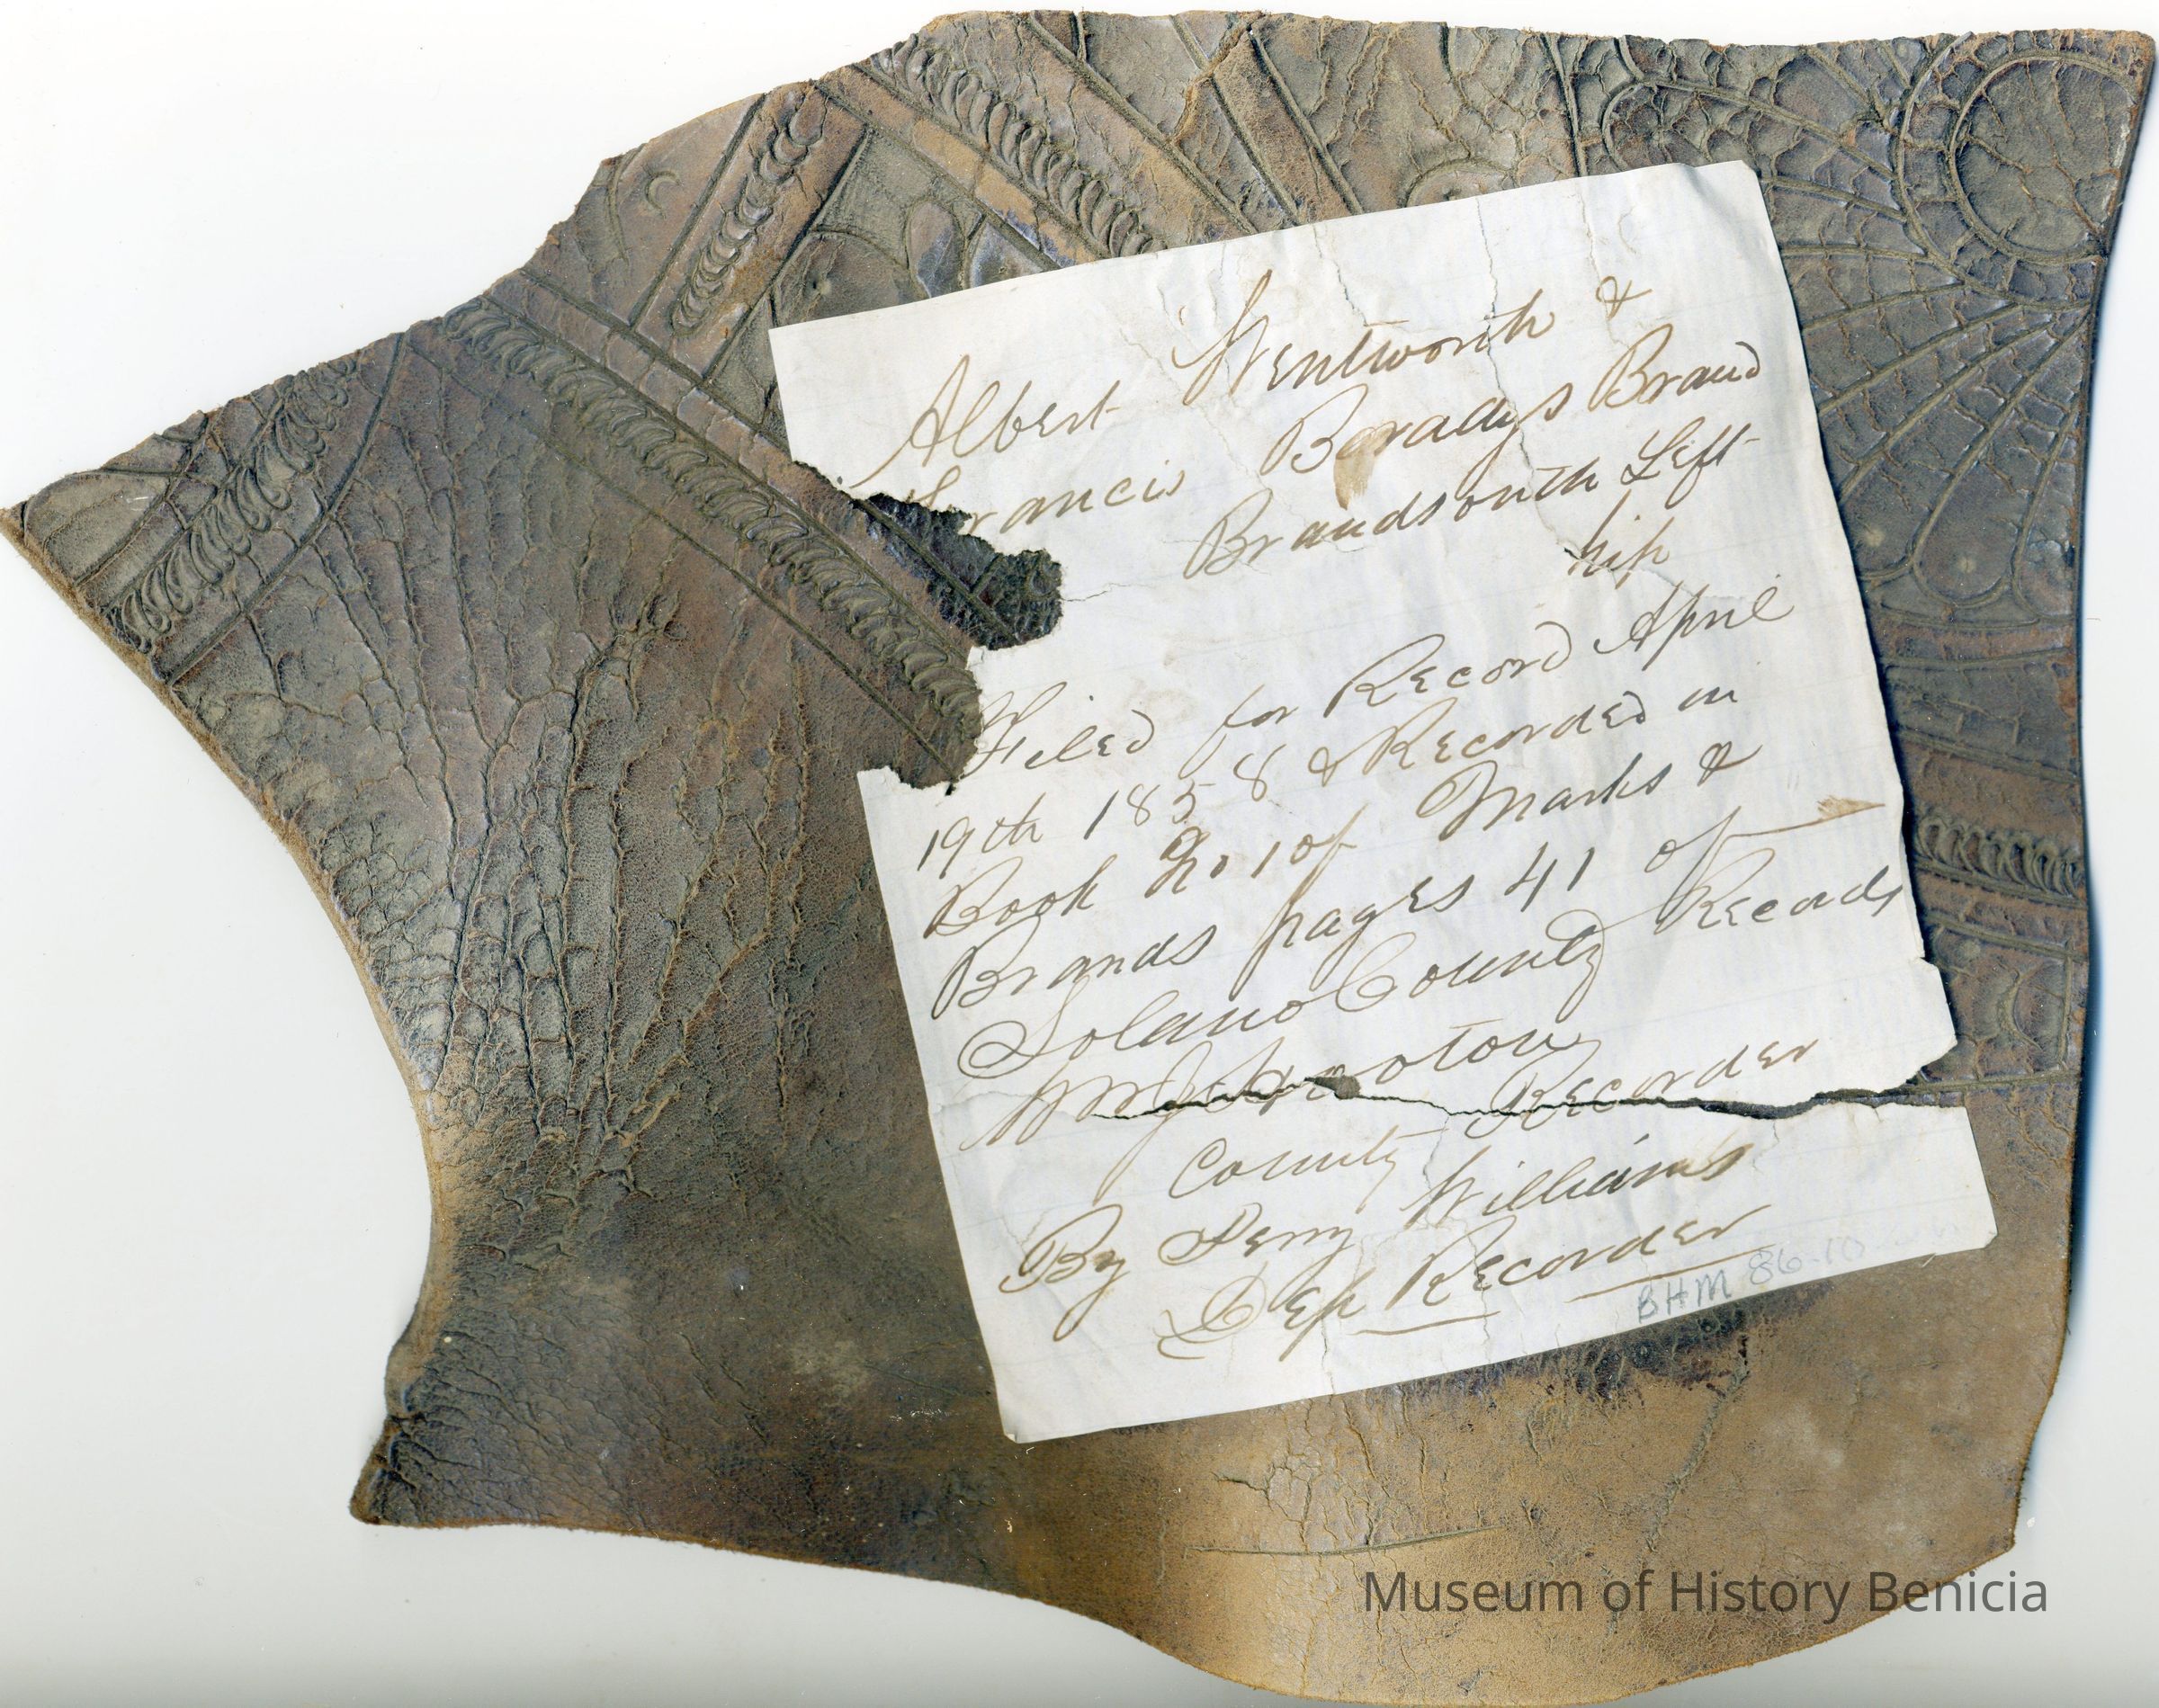 Albert Wentworth &
Francis Bradys Brand
Brandsonth Left
hip
Filed for Record April
19th 1858 & Recorded in
Book No 1 of Marks &
Brands pages 41 of
Solano County Records
Wm J
County Recorder
By Perry Williams
Dep Recorder
BHM 86-10
Museum of History Benicia